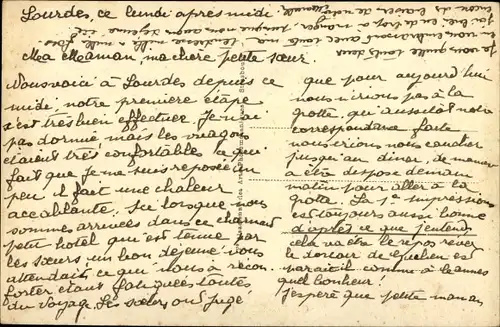 Lourdes, ce lundi après midi
Ma Maman, ma chère petite sœur.
Nous voici à Lourdes depuis ce
midi, notre première étape
s'est très bien effectuer. Je n'ai
pas dormie mais les wagons
étaient très confortables ce qui
fait que je me suis reposée un
peu il fait une chaleur
accablante. Ici lorsque nous
sommes arrivées dans ce charmant
petit hotel qui est tenue par
les sœurs un bon déjeuné nous
attendait ce qui nous a récon-
forter étant fatiguées toutes
du voyage. Les sœurs ont jugé
que pour aujourd'hui
nous n'irions pas à la
grotte, qui aussitôt notre
correspondance faite
nous irions nous coucher
jusqu'au diner, de manière
a être dispose demain
matin pour aller à la
grotte. La 1e impressions
est toujours aussi bonne
d'après ce que j'entends
cela va être le repos rever
le dortoir de
parait-il comme à
quel bonheur!
J'espère que petite maman
je vous quitte toutes deux
en vous embrassant avec toute ma tendresse mille a mille fois